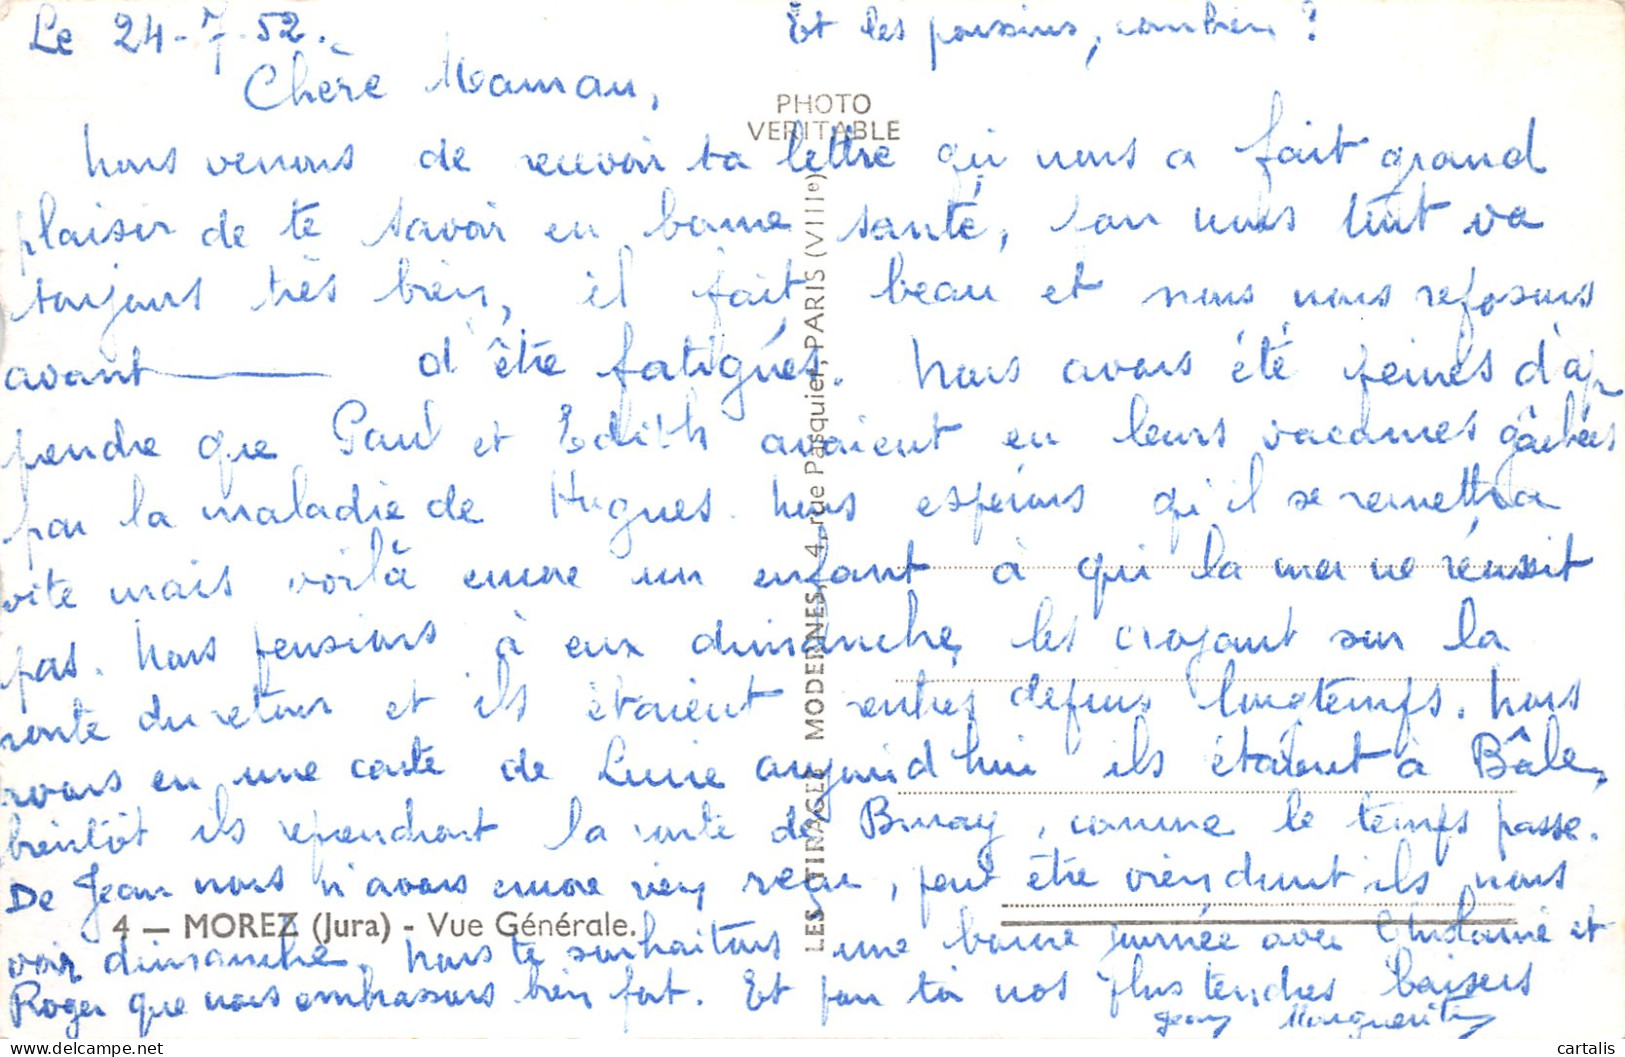 Le 24-7-52.
Et les poussins, combien ?
Chère Maman,
PHOTO
VERITABLE
Nous venons de recevoir ta lettre qui nous a fait grand
plaisir de te savoir en bonne santé, pour nous tout va
toujours très bien, il fait beau et nous nous reposons
avant d'être fatigués. Nous avons été peinés d'ap
prendre que Paul et Edith avaient eu leurs vacances gâchées
par la maladie de Hugues. Nous espérons qu'il se remettra
vite mais voilà encore un enfant à qui la mer ne réussit
pas. Nous pensions à eux dimanche, les croyant sur la
route du retour et ils étaient rentrés depuis longtemps. Nous
avons eu une carte de Lucie aujourd'hui ils étaient à Bâle,
bientôt ils reprendront la route de Bruay, comme le temps passe.
De Jean nous n'avons encore rien reçu, peut être viendront ils nous
voir dimanche. Nous te souhaitons une bonne journée avec Ghislaine et
Roger que nous embrassons bien fort. Et pour toi nos plus tendres baisers
Jean Marguerite
4 — MOREZ (Jura) - Vue Générale.
LES TIRAGES MODERNES, 4, rue Pasquier, PARIS (VIIIe)
cartalis